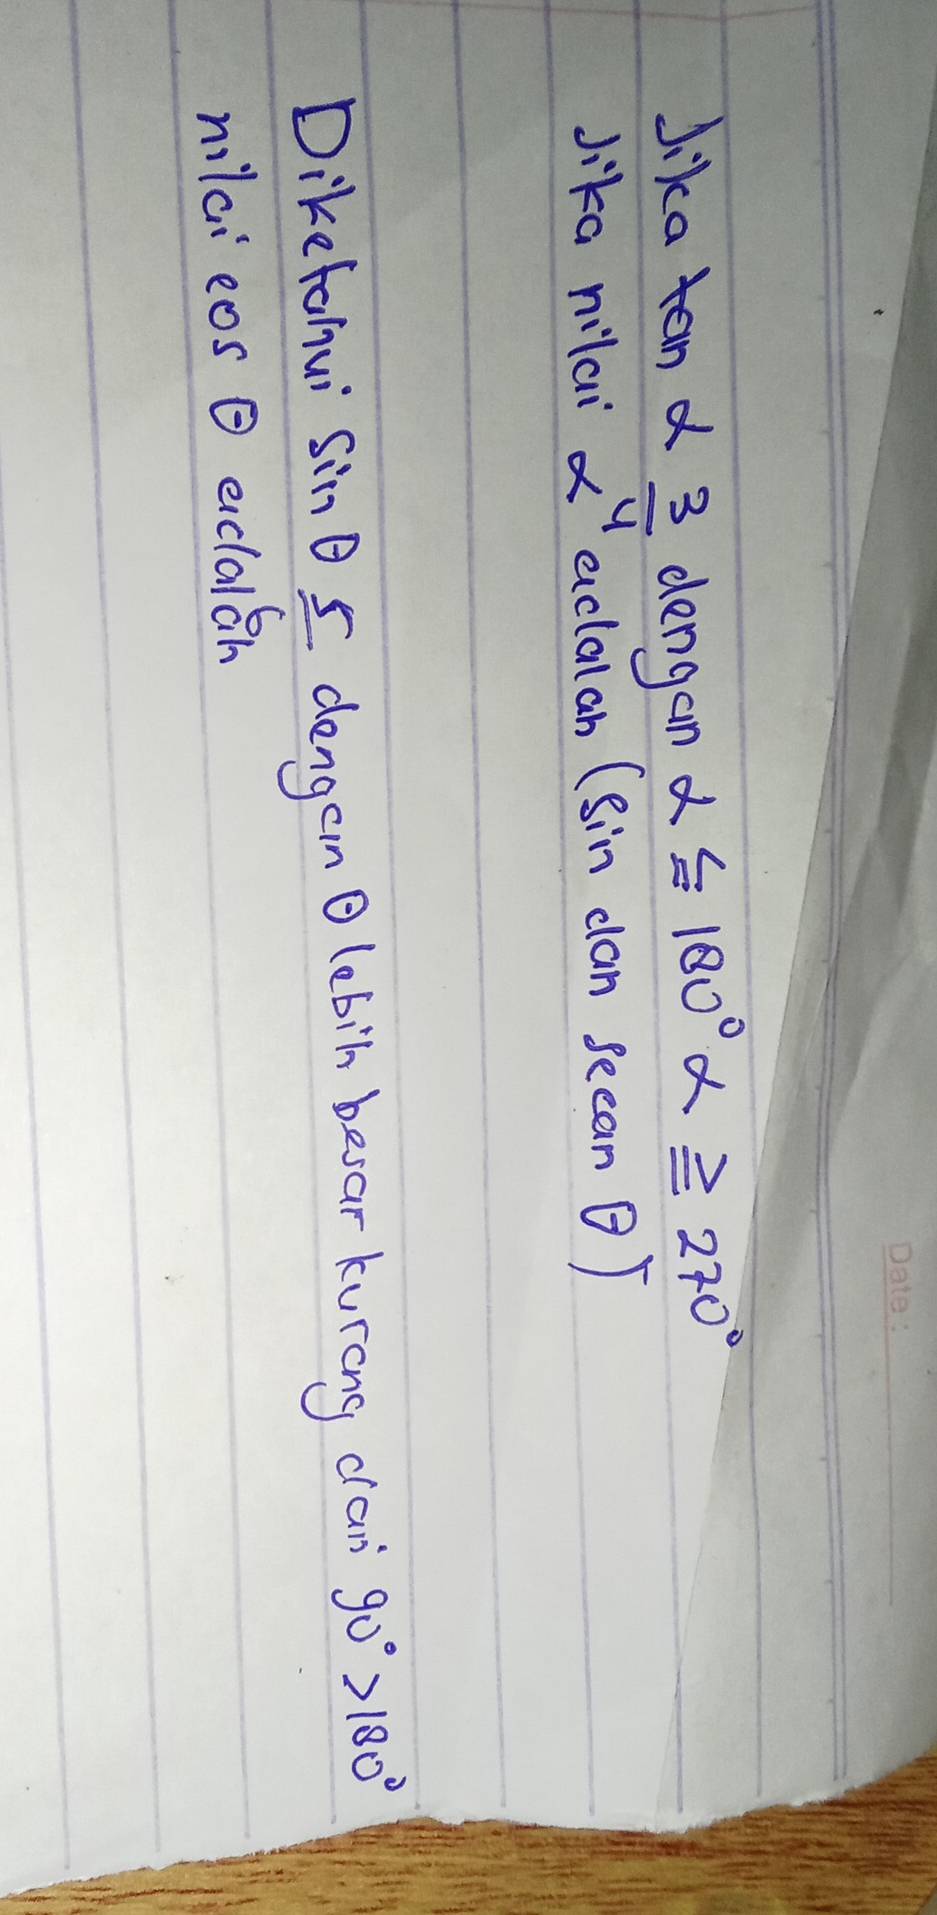 Date:
Jika tan α 3/4 dengan α ≤ 180° α ≥ 270°
Jika nilai α adalah (sin dan secan θ)
Diketahui sin θ 5/6 dengan θ lebih besar kurang dari 90° > 180°
nilai cos θ adalah